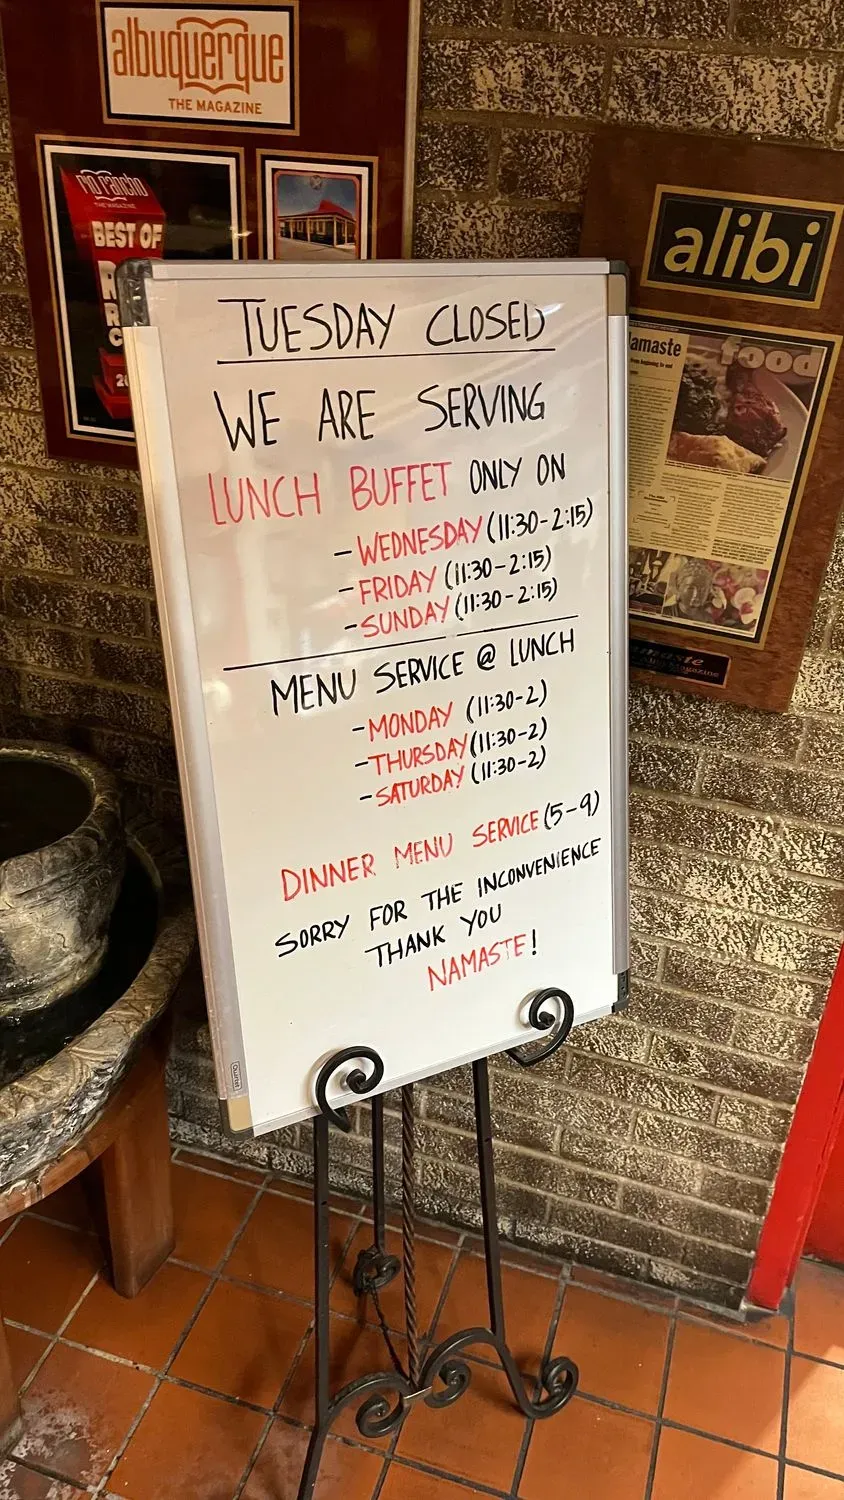 albuquerque
THE MAGAZINE
RIO RANCHO
THE MAGAZINE
BEST OF
alibi
Namaste
food
TUESDAY CLOSED
WE ARE SERVING
LUNCH BUFFET ONLY ON
- WEDNESDAY (11:30-2:15)
- FRIDAY (11:30-2:15)
- SUNDAY (11:30-2:15)
MENU SERVICE @ LUNCH
- MONDAY (11:30-2)
- THURSDAY (11:30-2)
- SATURDAY (11:30-2)
DINNER MENU SERVICE (5-9)
SORRY FOR THE INCONVENIENCE
THANK YOU
NAMASTE!
Quartet